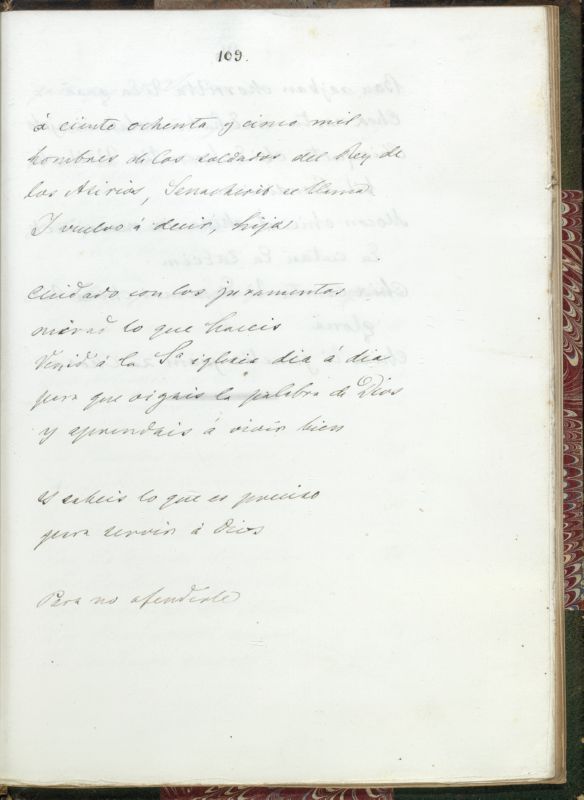 109.
á ciento ochenta y cinco mil
hombres de los soldados del Rey de
los Asirios, Senacherib se llama
Y vuelvo á decir, hija
Cuidado con los juramentos
mirad lo que haceis
Venid á la Sª iglesia dia á dia
para que oigais la palabra de Dios
y aprendais á vivir bien
y sabeis lo que es preciso
para servir á Dios
Para no ofenderle